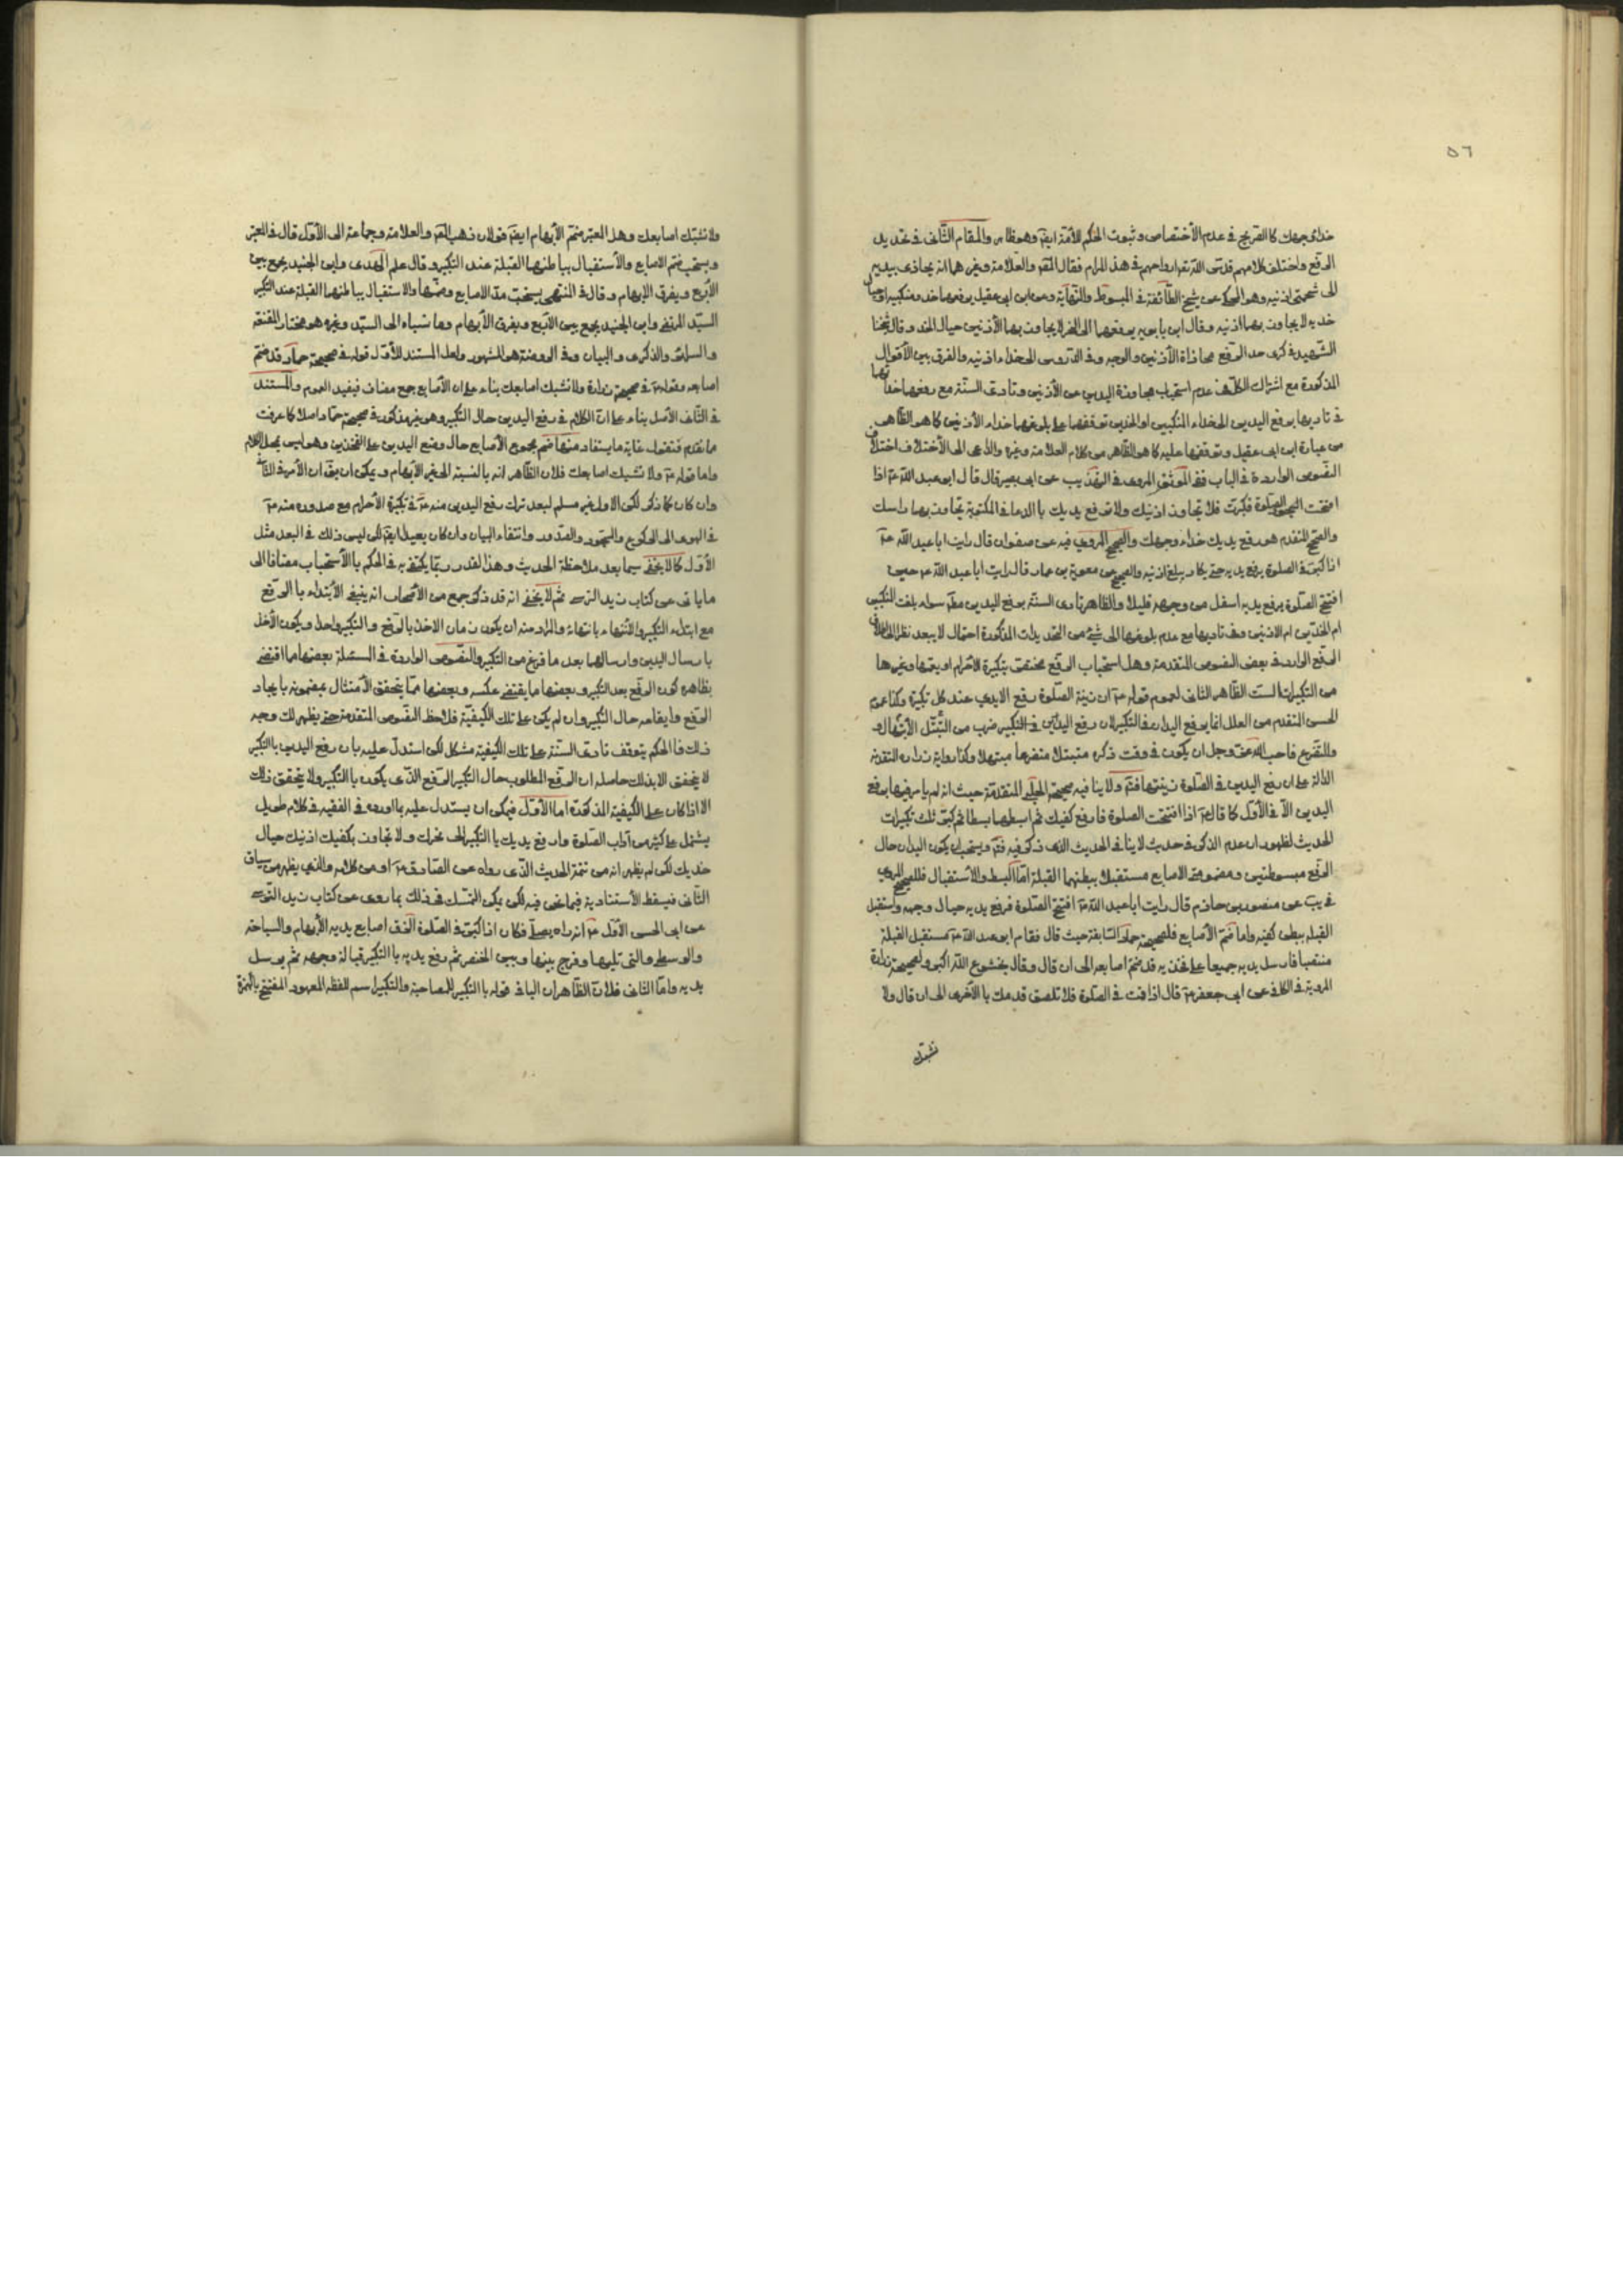 ٥٦
حذاء وجهك كالصريح في عدم الأختصاص وثبوت الحكم للأمة ايضا وهو ظاهر والمقام الثاني في تحديد
الرفع واختلف كلامهم قدس الله تعالى ارواحهم في هذا المرام فقال المص والعلامة وغيرهما انه يحاذي بيديه
الى شحمتي اذنيه وهو المحكي عن شيخ الطائفة في المبسوط والنهاية وعن ابن ابي عقيل يرفعهما حذو منكبيه او حيال
خديه لا يجاوز بهما اذنيه وقال ابن بابويه يرفعهما الى النحر لا يجاوز بهما الأذنين حيال الخد وقال شيخنا
الشهيد في كرى حد الرفع محاذاة الأذنين والوجه وفي الدروس الى حذاء اذنيه والفرق بين الأقوال
المذكورة مع اشتراك الكل في عدم استحباب مجاوزة اليدين عن الأذنين وتأدي السنة مع رفعهما حذائهما
في تاديها برفع اليدين الى حذاء المنكبين او الخدين وتوقفها على بلوغهما حذاء الأذنين كما هو الظاهر
من عبارة ابن ابي عقيل وتوقفها عليه كما هو الظاهر من كلام العلامة وغيره والداعي الى الأختلاف اختلاف
النصوص الواردة في الباب ففي الموثق المروي في التهذيب عن ابي بصير قال قال ابو عبد الله ع اذا
افتتحت الصلوة فكبرت فلا تجاوز اذنيك ولا ترفع يديك بالدعا في المكتوبة تجاوز بهما راسك
والصحيح المتقدم هو رفع يديك حذاء وجهك والصحيح المروي فيه عن صفوان قال رايت ابا عبد الله ع
اذا كبر في الصلوة يرفع يديه حتى يكاد يبلغ اذنيه والصحيح عن معوية بن عمار قال رايت ابا عبد الله ع حين
افتتح الصلوة يرفع يديه اسفل من وجهه قليلا والظاهر تادي السنة برفع اليدين مط سواء بلغت المنكبين
ام الخدين ام الاذنين وفي تاديها مع عدم بلوغهما الى شيء من التحديدات المذكورة احتمال لا يبعد نظرا الى اطلاق
الرفع الوارد في بعض النصوص المتقدمة وهل استحباب الرفع مختص بتكبيرة الاحرام او يعمها وغيرها
من التكبيرات الست الظاهر الثاني لعموم قوله ع ان زينة الصلوة رفع الايدي عند كل تكبيرة وكذا عموم
الحسن المتقدم من العلل انما يرفع اليدان في التكبير لان رفع اليدين في التكبير ضرب من التبتل الأبتهال و
والتضرع فاحب الله عز وجل ان يكون في وقت ذكره متبتلا متضرعا مبتهلا وكذا رواية زرارة المتقدمة
الدالة على ان رفع اليدين في الصلوة زينتها فتم ولا ينافيه صحيحة الحلبي المتقدمة حيث انه لم يامر فيها برفع
اليدين الا في الأول كما قال ع اذا افتتحت الصلوة فارفع كفيك ثم ابسطهما بسطا ثم كبر ثلث تكبيرات
الحديث لظهور ان عدم الذكر في حديث لا ينافي الحديث الذي ذكر فيه فتم ويستحب ان يكون اليدان حال
الرفع مبسوطتين ومضمومتي الاصابع مستقبلا ببطنهما القبلة اما البسط والاستقبال فللصحيح المروي
في يب عن منصور بن حازم قال رايت ابا عبد الله ع افتتح الصلوة فرفع يديه حيال وجهه واستقبل
القبلة ببطن كفيه واما ضم الأصابع فلصحيحة حماد السابقة حيث قال فقام ابو عبد الله ع مستقبل القبلة
منتصبا فارسل يديه جميعا على فخذيه قد ضم اصابعه الى ان قال وقال بخشوع الله اكبر ولصحيحة زرارة
المروية في الكافي عن ابي جعفر ع قال اذا قمت في الصلوة فلا تلصق قدمك بالأخرى الى ان قال ولا
تشبك
ولا تشبك اصابعك وهل المعتبر ضم الأبهام ايضا قولان ذهب المص والعلامة وجماعة الى الأول قال في المعتبر
ويستحب ضم الاصابع والأستقبال بباطنهما القبلة عند التكبير وقال علم الهدى وابن الجنيد يجمع بين
الأربع ويفرق الإبهام وقال في المنتهى يستحب مد الاصابع وضمها والاستقبال بباطنهما القبلة عند التكبير
السيد المرتضى وابن الجنيد يجمع بين الأربع ويفرق الأبهام وما نسباه الى السيد وغيره هو مختار المقنعة
و السرائر والذكرى والبيان وفي الروضة هو المشهور ولعل المستند للأول قوله في صحيحة حماد قد ضم
اصابعه وقوله ع في صحيحة زرارة ولا تشبك اصابعك بناء على ان الأصابع جمع مضاف فيفيد العموم والمستند
في الثاني الأصل بناء على ان الكلام في رفع اليدين حال التكبير وهو غير مذكور في صحيحة حماد اصلا كما عرفت
ما تقدم فنقول غاية ما يستفاد منها ضم مجموع الأصابع حال وضع اليدين على الفخذين وهو ليس بمحل الكلام
واما قوله ع ولا تشبك اصابعك فلان الظاهر انه بالنسبة الى غير الأبهام ويمكن ان يقال ان الأمر في الثاني
وان كان كما ذكر لكن الاول غير مسلم لبعد ترك رفع اليدين منه ع في تكبيرة الأحرام مع صدوره منه ع
في الهوى الى الركوع والسجود والقدور وانتفاء البيان وان كان بعيدا ايضا لكن ليس ذلك في البعد مثل
الأول كما لا يخفى سيما بعد ملاحظة الحديث وهذا القدر ربما يكتفى به في الحكم بالأستحباب مضافا الى
ما ياتي عن كتاب زيد النرسي ثم لا يخفى انه قد ذكر جمع من الأصحاب انه ينبغي الأبتداء بالرفع
مع ابتداء التكبير والأنتهاء بانتهاء والمراد منه ان يكون زمان الاخذ بالرفع والتكبير واحدا ويكون الأخذ
بارسال اليدين وارسالهما بعد ما فرغ من التكبير والنصوص الواردة في المسئلة بعضها ما اقتضى
بظاهره كون الرفع بعد التكبير وبعضها ما يقتضي عكسه وبعضها مما يتحقق الأمتثال بمضمونه بايجاد
الرفع وايقاعه حال التكبير وان لم يكن على تلك الكيفية فلاحظ النصوص المتقدمة حتى يظهر لك وجه
ذلك فالحكم بتوقف تادي السنة على تلك الكيفية مشكل لكن استدل عليه بان رفع اليدين بالتكبير
لا يتحقق الا بذلك حاصله ان الرفع المطلوب حال التكبير الرفع الذي يكون بالتكبير ولا يتحقق ذلك
الا اذا كان على الكيفية المذكورة اما الأول فيمكن ان يستدل عليه بما اورده في الفقيه في كلام طويل
يشتمل على كثير من آداب الصلوة وارفع يديك بالتكبير الى نحرك ولا تجاوز بكفيك اذنيك حيال
خديك لكن لم يظهر انه من تتمة الحديث الذي رواه عن الصادق ع او من كلامه والذي يظهر من سياق
الثاني فيسقط الأستناد به فيما نحن فيه لكن يمكن التمسك في ذلك بما روى عن كتاب زيد النرسي
عن ابي الحسن الأول ع انه راه يصلي فكان اذا كبر في الصلوة الزق اصابع يديه الأبهام والسباحة
والوسطى والتي تليهما وفرج بينها وبين الخنصر ثم رفع يديه بالتكبير قبالة وجهه ثم يرسل
يديه واما الثاني فلان الظاهر ان البا في قوله بالتكبير للمصاحبة والتكبير اسم للفظ المعهود المفتتح بالهمزة